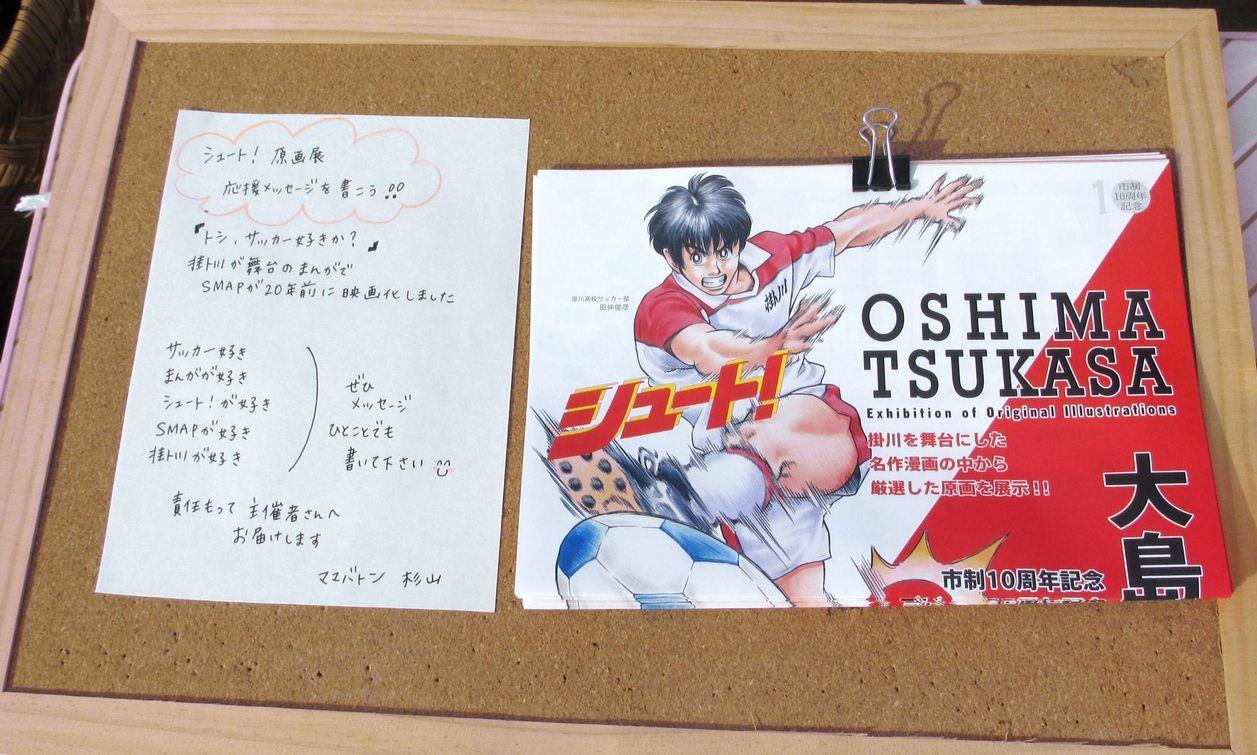 シュート! 原画展
応援メッセージを書こう!!
『トシ、サッカー好きか?』
掛川が舞台のまんがで
SMAPが20年前に映画化しました
サッカー好き
まんがが好き
シュート!が好き
SMAPが好き
掛川が好き
ぜひ
メッセージ
ひとことでも
書いて下さい
責任もって 主催者さんへ
お届けします
ママバトン 杉山
市制
10周年
記念
掛川高校サッカー部
田仲俊彦
掛川
シュート!
OSHIMA
TSUKASA
Exhibition of Original Illustrations
掛川を舞台にした
名作漫画の中から
厳選した原画を展示!!
大島
市制10周年記念